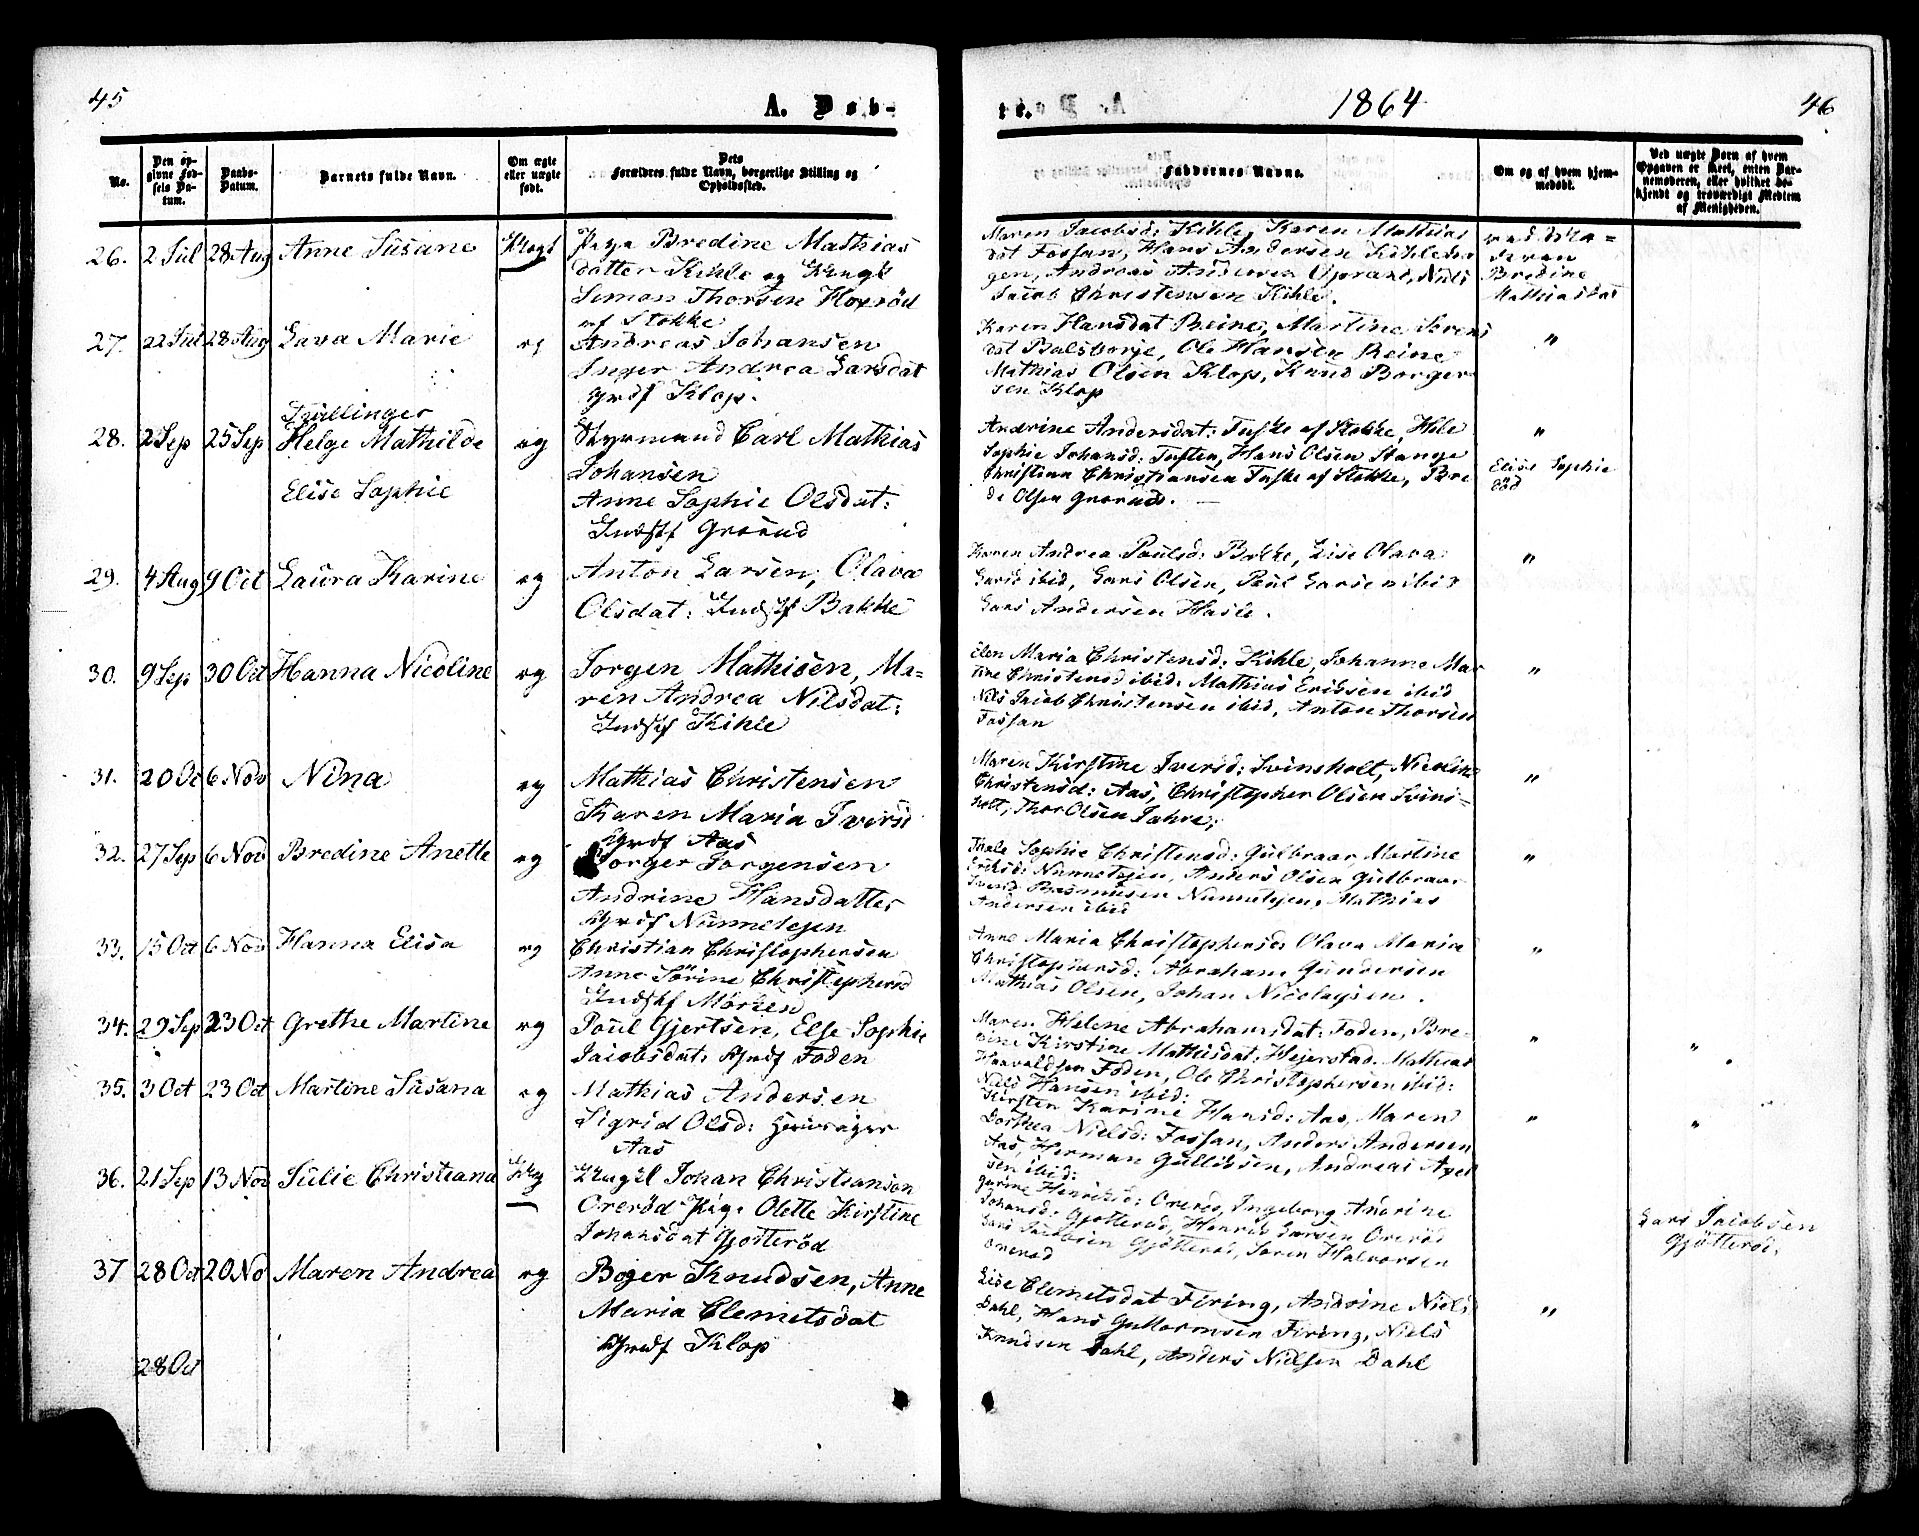 45
A. Døb-
te.
1864
46
No.
Den op-
givne Fød-
sels Da-
tum.
Daabs-
Datum.
Barnets fulde Navn.
Om ægte
eller uægte
født.
Dets
Forældres fulde Navn, borgerlige Stilling og
Opholdssted.
Faddernes Navne.
Om og af hvem hjem-
medøbt.
Ved uægte Børn af hvem
Opgaven er skeet, enten Bar-
nemoderen, eller hvilket be-
kjendt og troværdigt Medlem
af Menigheden.
26. 2 Jul 28 Aug Anne Susane Uægt Pige Bredine Mathias
datter Kihle og Ungk
Simon Thorsen Hoxrød
af Stokke
Maren Jacobsd: Kihle, Karen Mathias
dat Fossan, Hans Andersen Kihleha
gen, Andreas Andersen Nils
Jacob Christensen Kihle.
ved Ma=
deren
Bredine
Mathiasdat
27. 22 Jul 28 Aug Lava Marie eg Andreas Johansen
Inger Andrea Larsdat
Grdf Klop.
Karen Hansdat Reine, Martine Sørens
dat Ole Hansen Reine
Mathias Olsen Klop, Knud Borger
sen Klop
"
Tvillinger
28. 2 Sep 25 Sep Helge Mathilde eg Styrmand Carl Mathias
Elise Sophie
Johansen
Anne Sophie Olsdat:
Indstf Grorud
Andrine Andersdat: Tuske af Stokke, Hele
Sophie Johansd: Tuften, Hans Olsen Stange
Christian Christiansen Tuske af Stokke, Bre
de Olsen Grorud.
"
Elise Sophie
død
29. 4 Aug 9 Oct Laura Karine eg Anton Larsen, Olava
Olsdat: Indstf Bakke
Karen Andrea Poulsd: Bakke, Lise Olava
Larsd ibid, Lars Olsen, Poul Larsen ibid
Lars Andersen Hasle.
"
30. 9 Sep 30 Oct Hanna Nicoline eg Jorgen Mathisen, Ma-
ren Andrea Nilsdat:
Indstf Kihle
Elen Maria Christensd: Kihle, Johanne Mar
tine Christensd ibid: Mathias Eriksen ibid
Nils Jacob Christensen ibid, Anton Thorsen
Fossan
"
31. 20 Oc 6 Nov Nina eg Mathias Christensen
Karen Maria Iversd
Grdf Aas
Maren Kirstine Iversd: Svinsholt, Nicoline
Christensd: Aas, Christopher Olsen Svins-
holt, Thor Olsen Jahre;
"
32. 27 Sep 6 Nov Bredine Anette eg Jorger Jorgensen
Andrine Hansdatter
Grdf Nunnetejen
Thale Sophie Christensd: Gulbraar, Martine
Eriksd: Nunnetejen, Anders Olsen Gulbraar
Rasmussen Nunnetejen, Mathias
Andersen ibid
"
33. 15 Oct 6 Nov Hanna Elisa eg Christian Christophersen
Anne Sörine Christophersd
Indstf Mörken
Anne Maria Christophersd: Olava Marie
Christophersd: Abraham Gundersen
Mathias Olsen, Johan Nicolaysen.
"
34. 29 Sep 23 Oct Grethe Martine eg Poul Gjertsen, Else Sophie
Jacobsdat: Grdf Foden
Maren Helene Abrahamsdat: Foden, Bre-
dine Kirstine Mathisdat: Hejerstad. Mathias
Haavaldsen Foden, Ole Christophersen ibid:
Niels Hansen ibid:
" "
35. 3 Oct 23 Oct Martine Susana eg Mathias Andersen
Sigrid Olsd:
Aas
Kirsten Karine Hansd: Aas, Maren
Dorthea Nielsd: Fossan, Anders Andersen
Aas, Herman Gulliksen, Andreas Axel
sen ibid:
" "
36. 21 Sep 13 Nov Julie Christiana Ungk Johan Christiansen
Orerød Pige Olette Kirstine
Johansdat Gjötterød
Henriksd: Orerød, Ingeborg Andrine
Johansd: Gjötterød, Henrik Larsen Orerød
Lars Jacobsen Gjötterød, Søren Halvorsen
orerød
Lars Jacobsen
Gjötterød,
37 28 Oct 20 No Maren Andrea eg Boger Knudsen, Anne
Maria Clemetsdat
Grdf Klop
Lise Clemetsdat Firing, Andrine Niels
Dahl, Hans Guttormsen Firing, Niels
Knudsen Dahl, Anders Nielsen Dahl
"
28 Oct